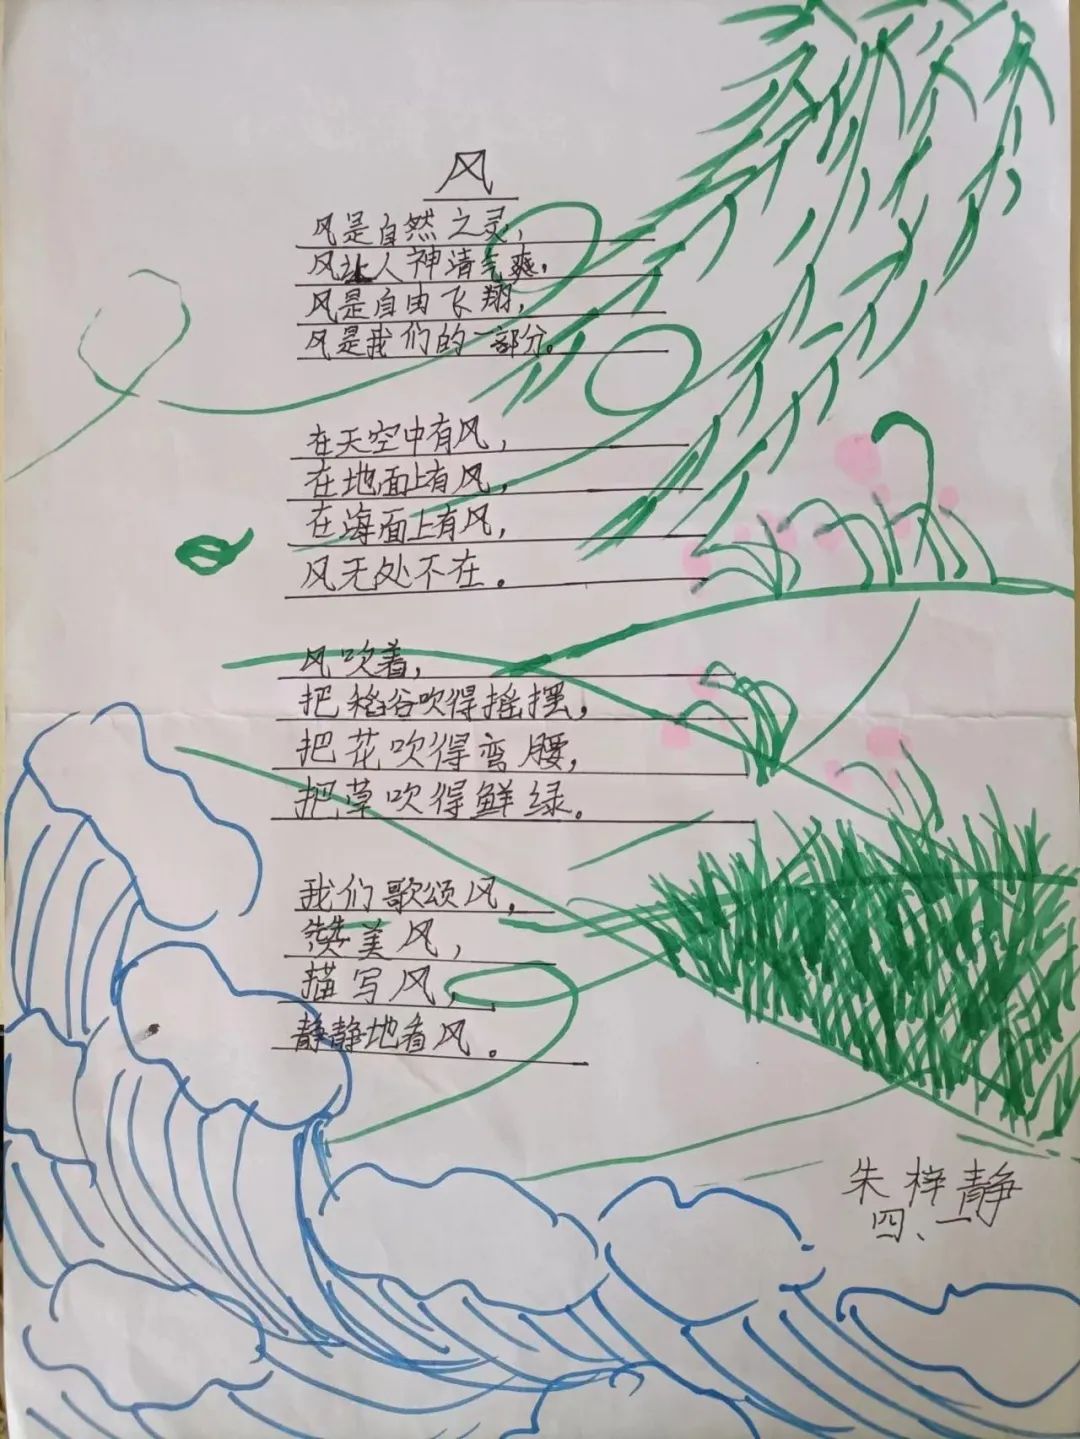 风
风是自然之灵，
风让人神清气爽，
风是自由飞翔，
风是我们的一部分。
在天空中有风，
在地面上有风，
在海面上有风，
风无处不在。
风吹着，
把稻谷吹得摇摆，
把花吹得弯腰，
把草吹得鲜绿。
我们歌颂风，
赞美风，
描写风，
静静地看风。
朱梓静
四、一